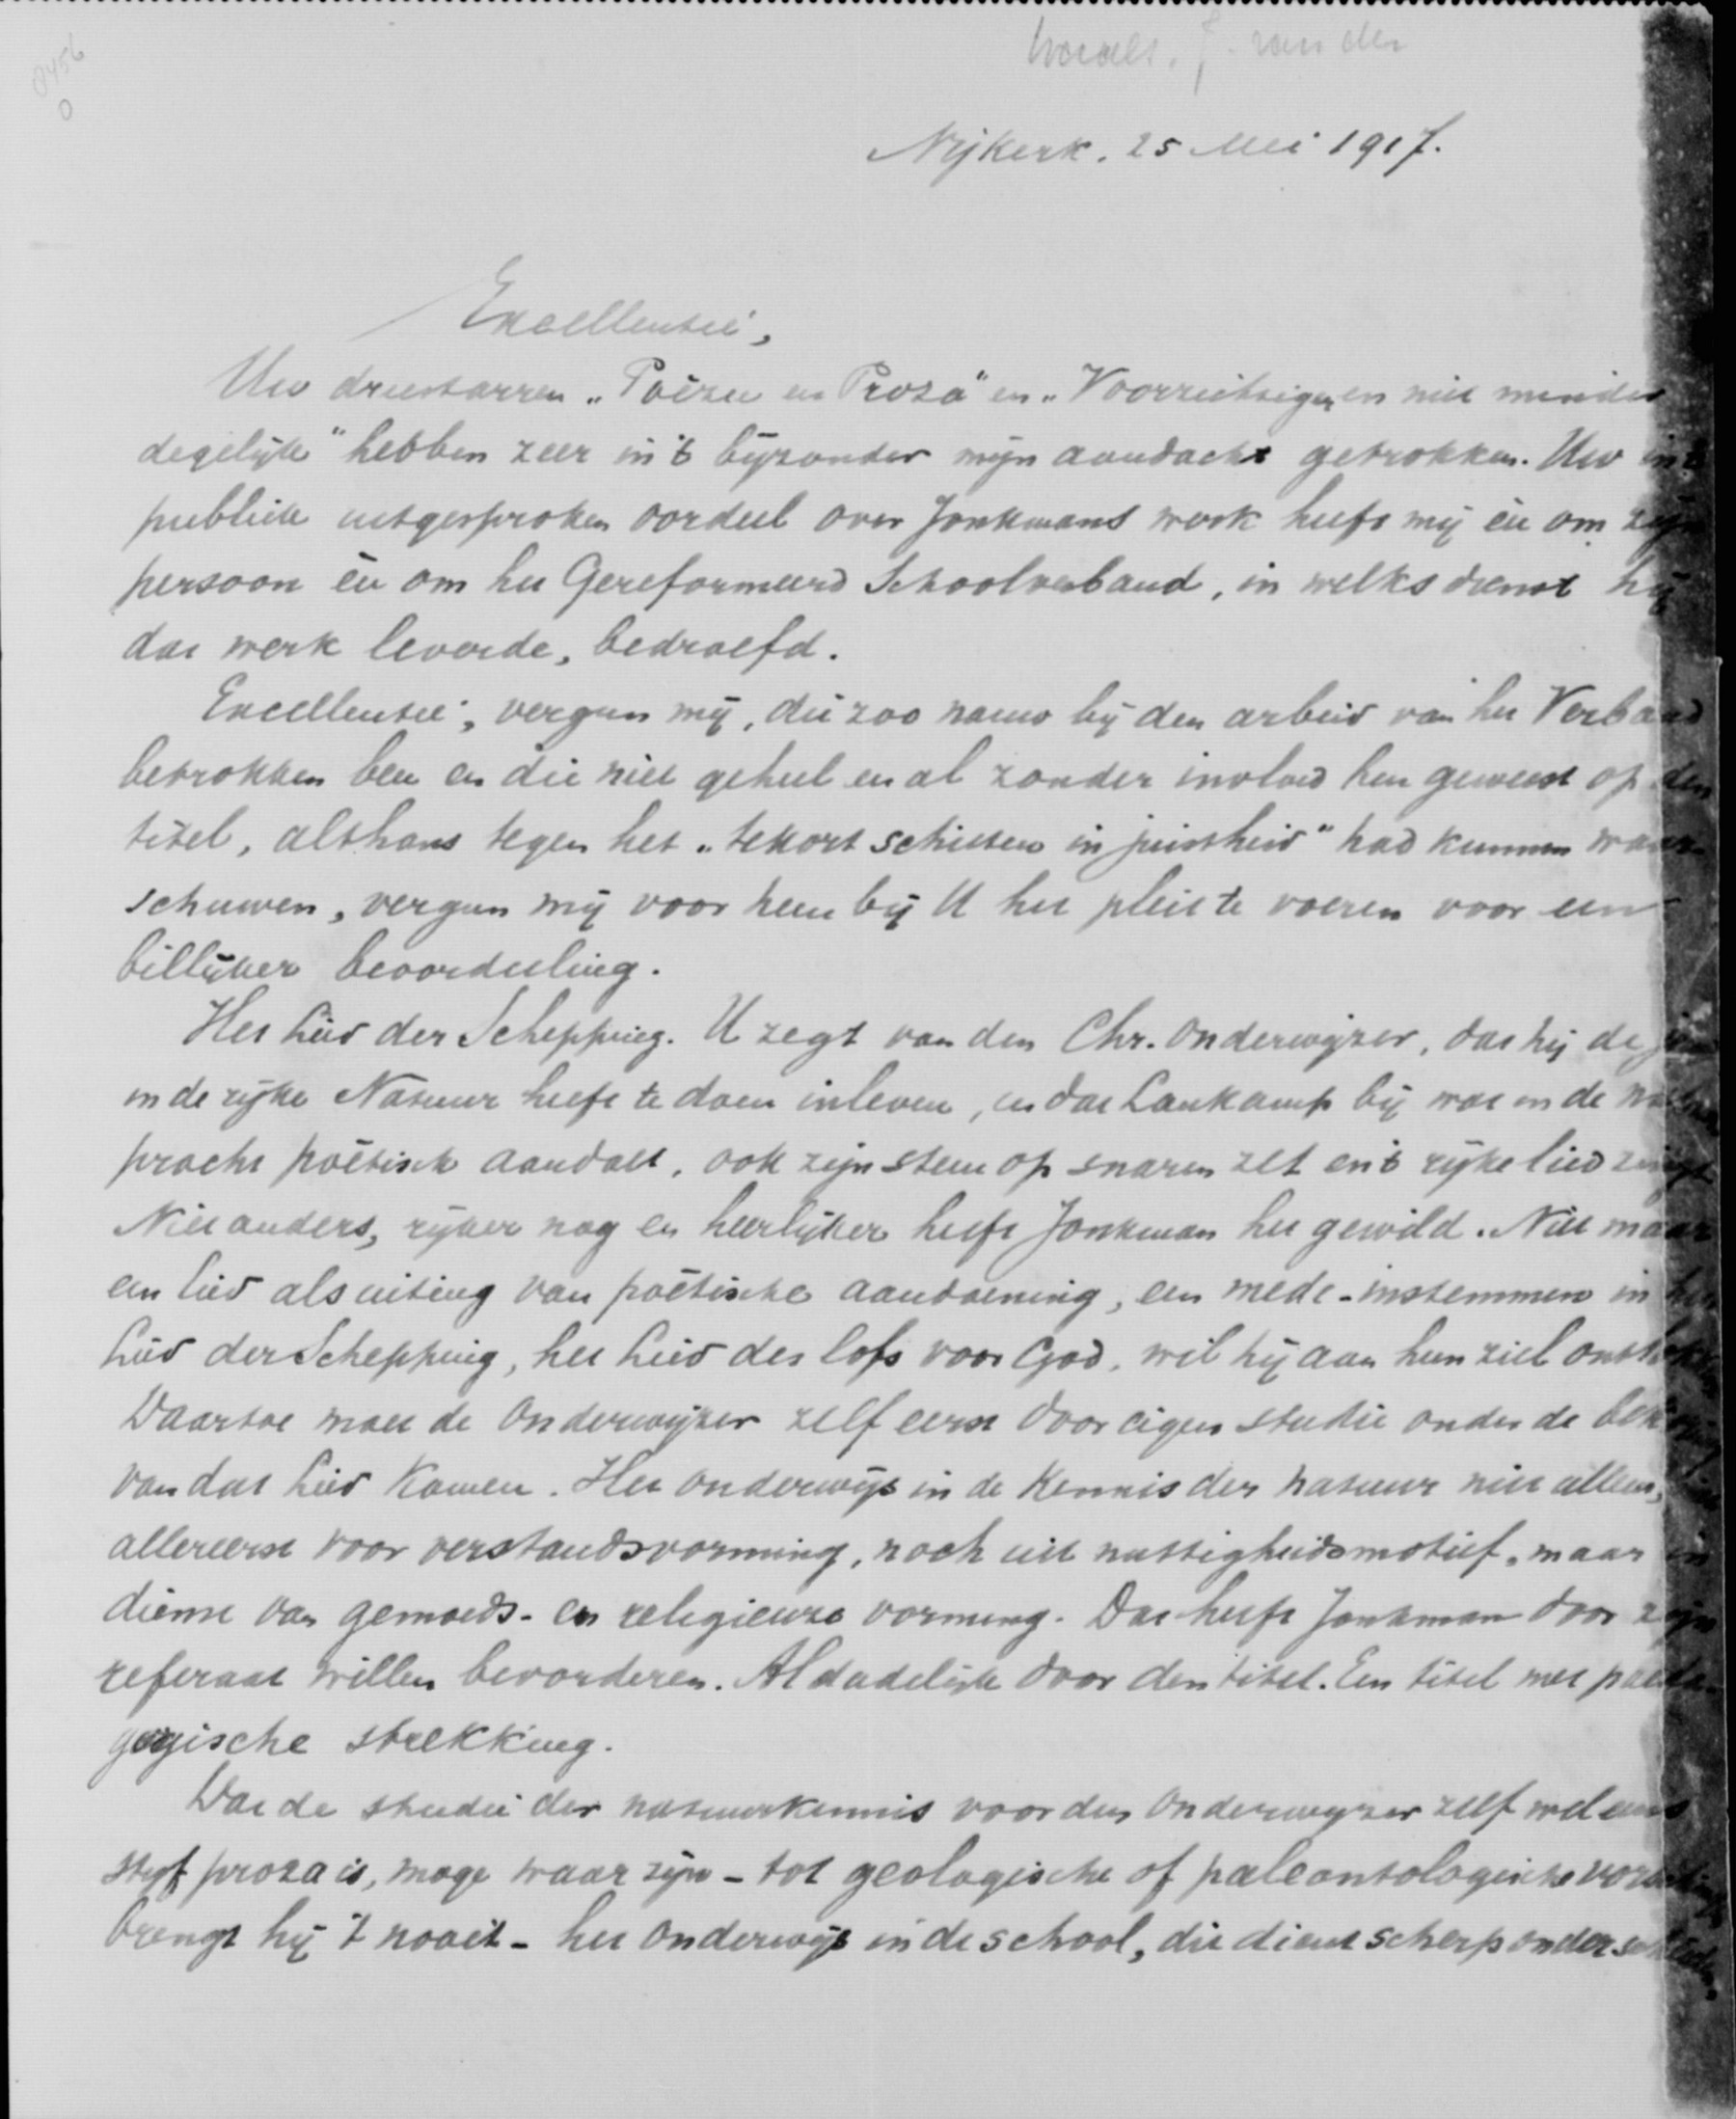 8456
0
Waals, J. van der
Nijkerk, 25 Mei 1917.
Excellentie,
Uw driestarren „Poëzie en Proza" en „Voorzichtiger en niet minder
degelijk" hebben zeer in 't bijzonder mijn aandacht getrokken. Uw in 't
publiek uitgesproken oordeel over Jonkmans werk heeft mij èn om zijn
persoon èn om het Gereformeerd Schoolverband, in welks dienst hij
dat werk leverde, bedroefd.
Excellentie, vergun mij, die zoo nauw bij den arbeid van het Verband
betrokken ben en die niet geheel en al zonder invloed ben geweest op den
titel, althans tegen het „tekort schieten in juistheid" had kunnen waar-
schuwen, vergun mij voor hem bij U het pleit te voeren voor een
billijker beoordeeling.
Het Lied der Schepping. U zegt van den Chr. onderwijzer, dat hij de
in de rijke Natuur heeft te doen inleven, en dat Lankamp bij wat in de
pracht poëtisch aandoet, ook zijn stem op snaren zet en 't rijke lied zingt
Niet anders, rijker nog en heerlijker heeft Jonkman het gewild. Niet maar
een lied als uiting van poëtische aandoening, een mede-instemmen in het
Lied der Schepping, het Lied des lofs voor God, wil hij aan hun ziel ontlokken
Daartoe moet de Onderwijzer zelf eerst door eigen studie onder de
van dat Lied komen. Het onderwijs in de kennis der natuur niet alleen,
allereerst voor verstandsvorming, noch uit nuttigheidsmotief, maar in
dienst van gemoeds- en religieuze vorming. Dat heeft Jonkman door zijn
referaat willen bevorderen. Al dadelijk door den titel. Een titel met paeda-
gogische strekking.
Dat de studie der natuurkennis voor den Onderwijzer zelf wel eens
stijf proza is, moge waar zijn - tot geologische of paleontologische vorsching
brengt hij 't nooit - het onderwijs in de school, die dient scherp onderscheiden,